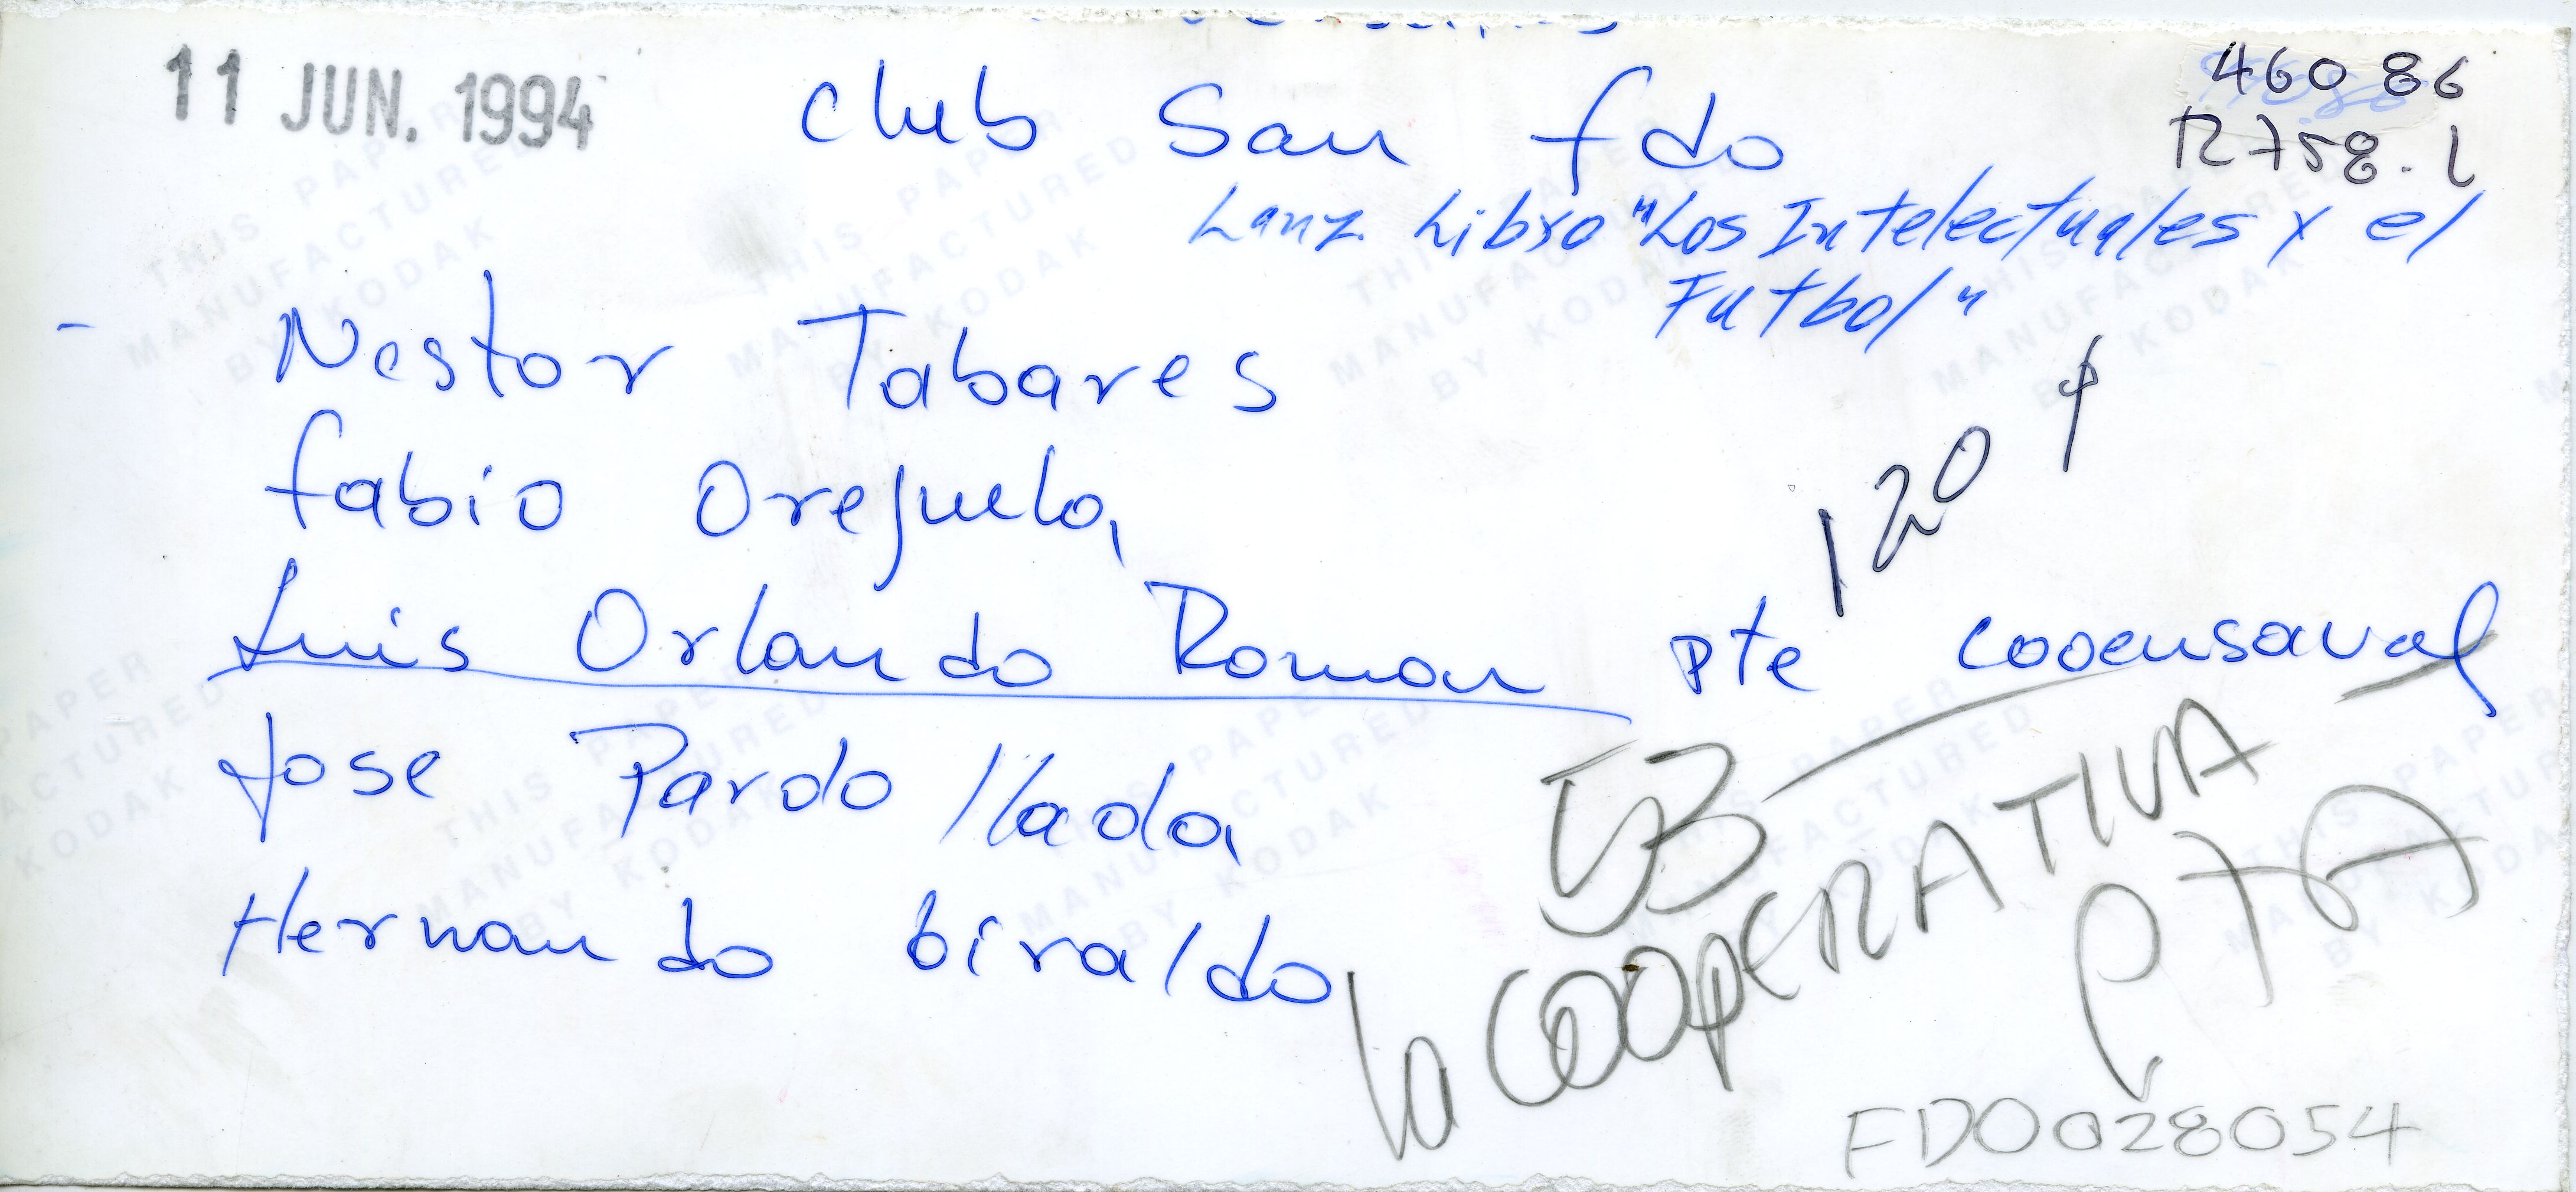 11 JUN. 1994
Club San fdo
46086
R758.L
Lanz. Libro "Los Intelectuales y el
Futbol"
- Nestor Tabares
fabio Orejuela
120
Luis Orlando Roman pte cooensaval
Jose Pardo llada
Hernando Giraldo
la COOPERATIVA
FD0028054
THIS PAPER
MANUFACTURED
BY KODAK